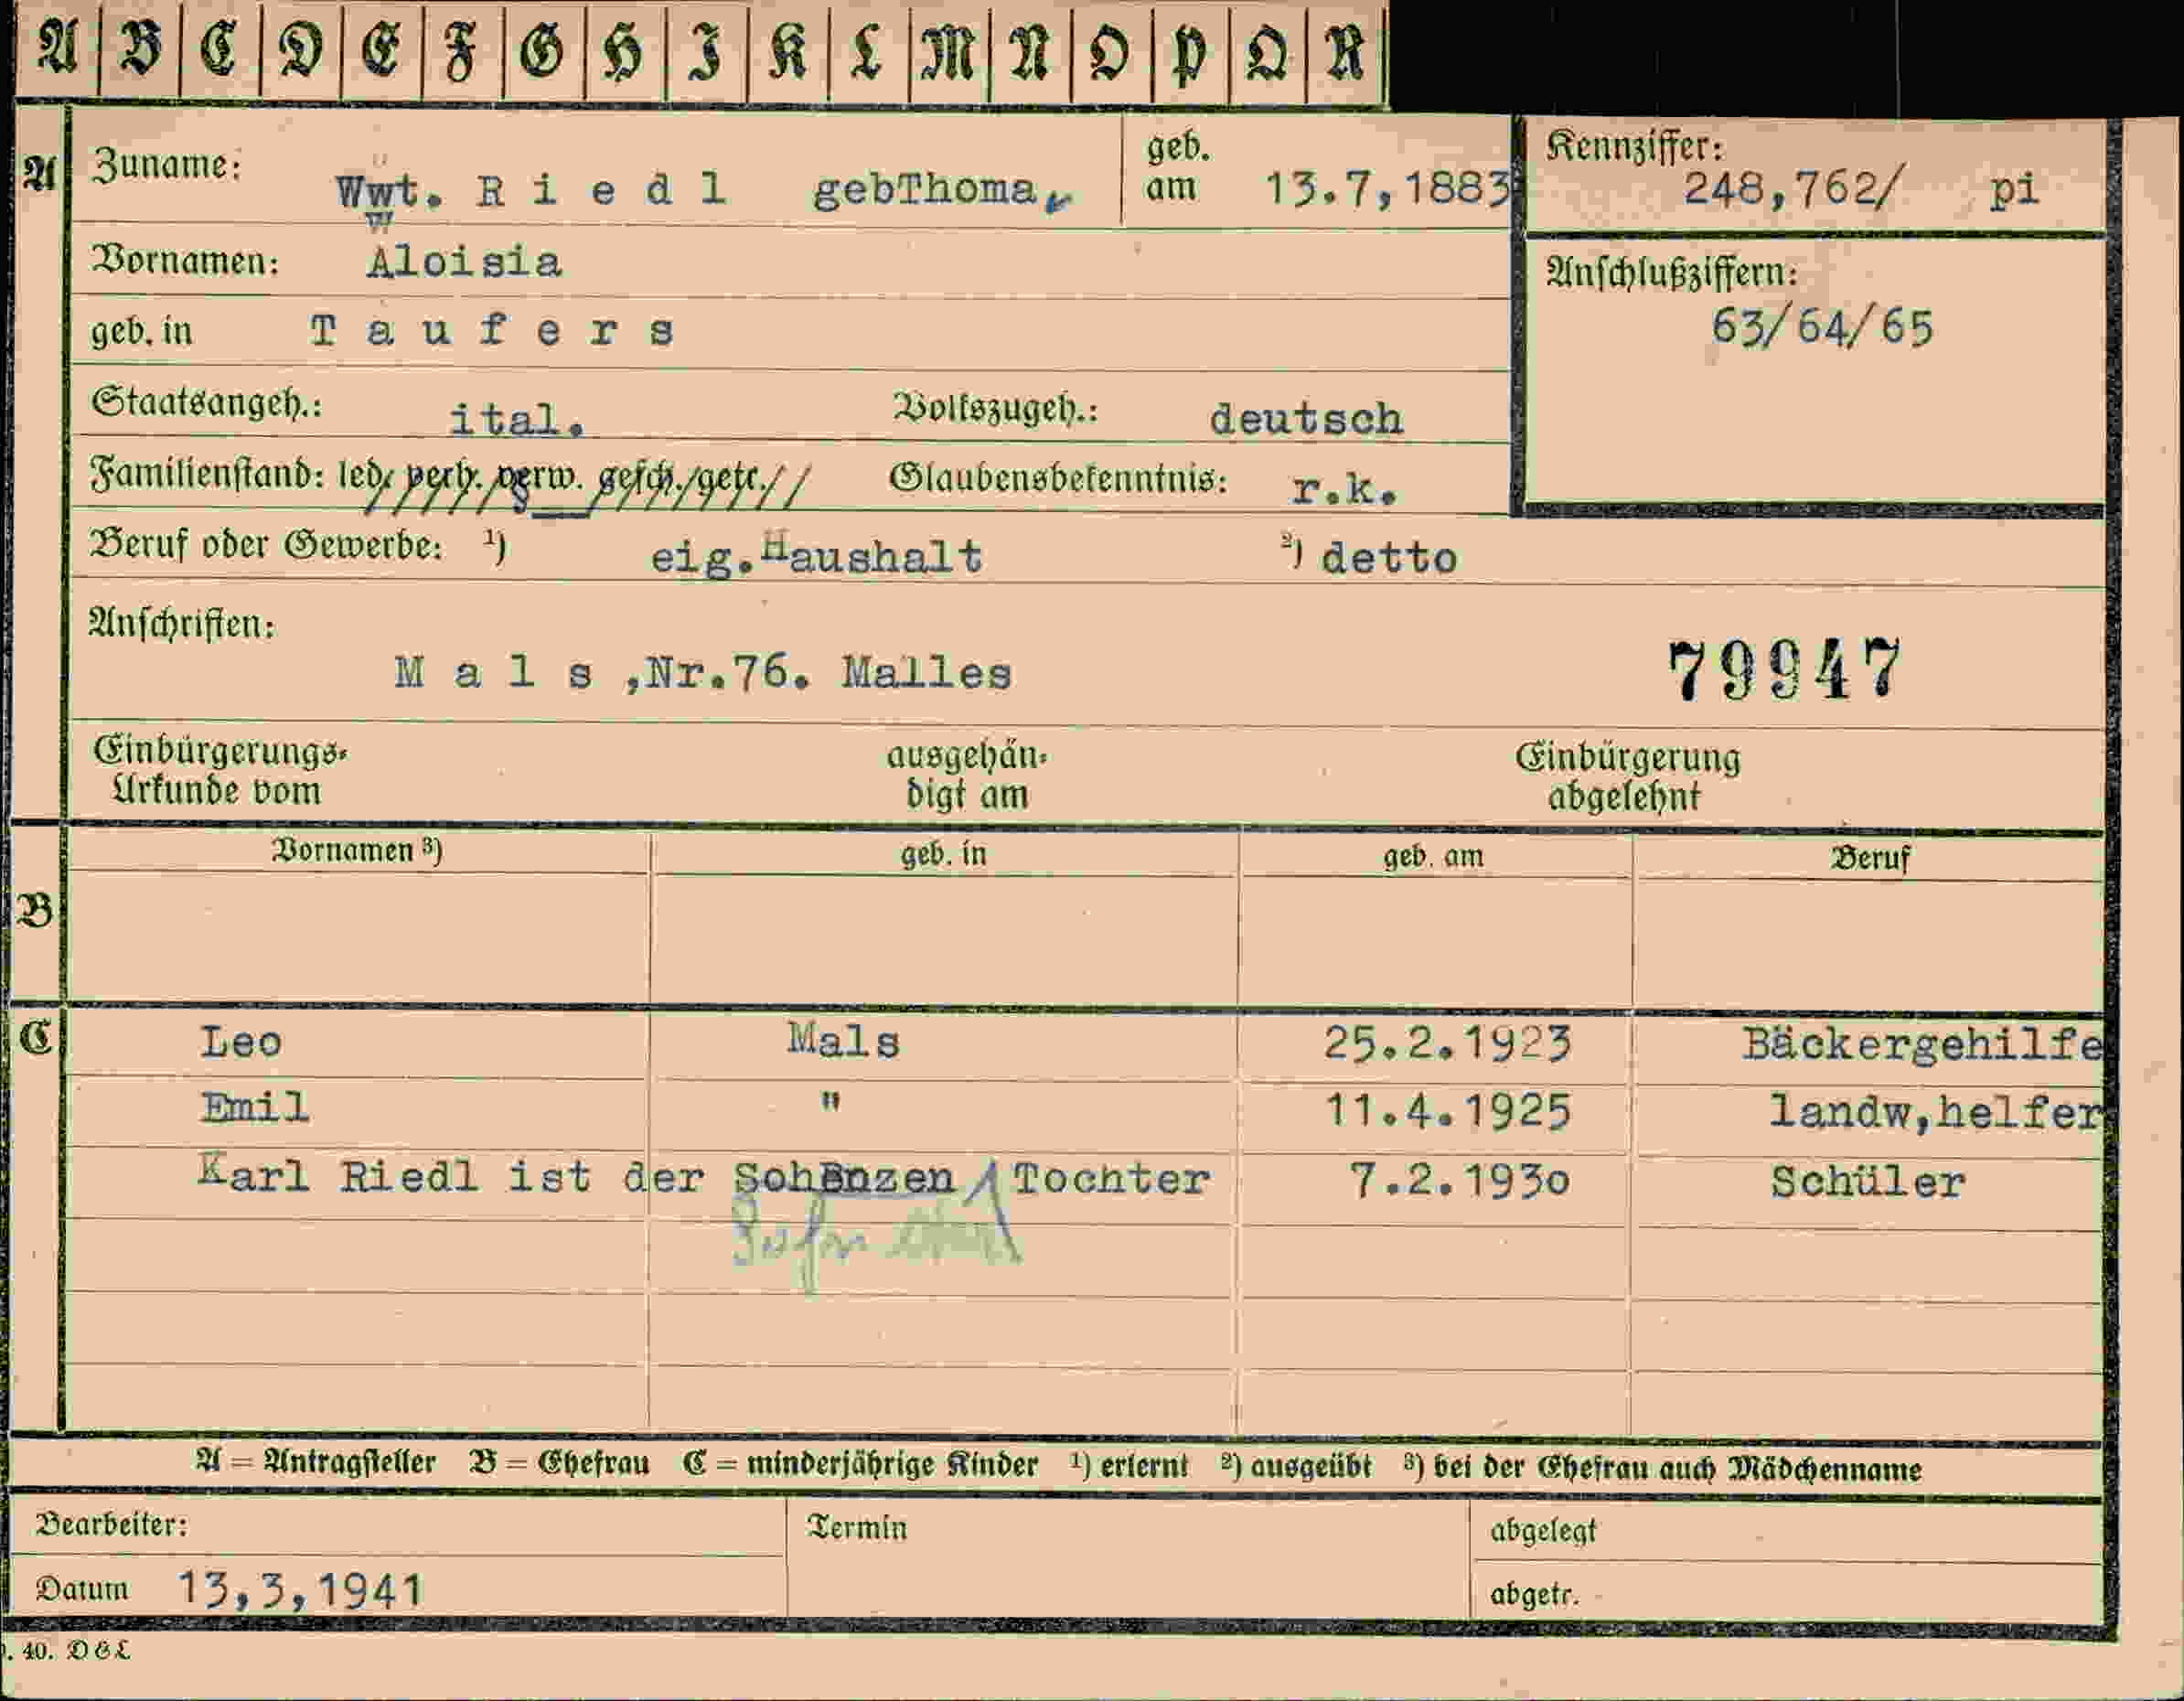 A B C D E F G H I K L M N O P Q R
A Zuname: Wwt. R i e d l gebThoma, geb. am 13.7,1883
Kennziffer: 248,762/ pi
Vornamen: Aloisia
Anschlußziffern: 63/64/65
geb. in T a u f e r s
Staatsangeh.: ital. Volkszugeh.: deutsch
Familienstand: led. verh. verw. gesch./getr. Glaubensbekenntnis: r.k.
Beruf oder Gewerbe: ¹) eig.Haushalt ²) detto
Anschriften:
M a l s ,Nr.76. Malles 79947
Einbürgerungs-Urkunde vom ausgehändigt am Einbürgerung abgelehnt
Vornamen ³) geb. in geb. am Beruf
B
C Leo Mals 25.2.1923 Bäckergehilfe
Emil " 11.4.1925 landw,helfer
Karl Riedl ist der Tochter 7.2.1930 Schüler
A = Antragsteller B = Ehefrau C = minderjährige Kinder ¹) erlernt ²) ausgeübt ³) bei der Ehefrau auch Mädchenname
Bearbeiter: Termin abgelegt
Datum 13,3,1941 abgetr.
. 40. DGL